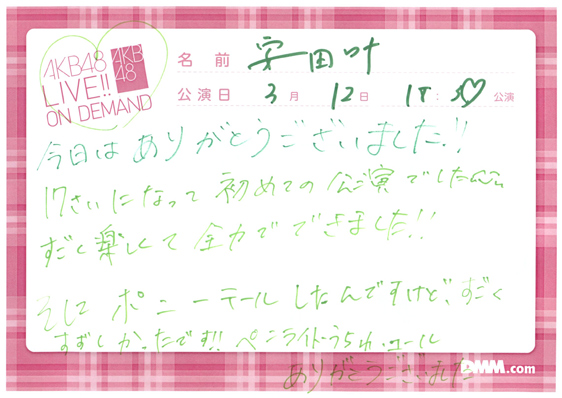 AKB48
LIVE!!
ON DEMAND
AKB
48
名前 安田叶
公演日 3月 12日 18:30 公演
今日はありがとうございました!!
17さいになって初めての公演でしたんだけど
すごく楽しくて全力でできました!!
そしてポニーテールしたんですけど、すごく
すずしかったです!! ペンライト・うちわ・コール
ありがとうございました
DMM.com